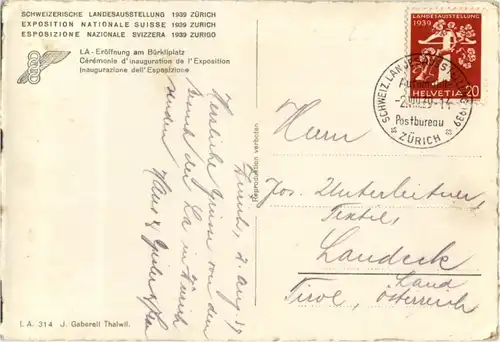 SCHWEIZERISCHE LANDESAUSSTELLUNG 1939 ZÜRICH
EXPOSITION NATIONALE SUISSE 1939 ZURICH
ESPOSIZIONE NAZIONALE SVIZZERA 1939 ZURIGO
LA - Eröffnung am Bürkliplatz
Cérémonie d'inauguration de l'Exposition
Inaugurazione dell'Esposizione
LANDESAUSSTELLUNG
1939
HELVETIA 20
SCHWEIZ. LANDESAUSSTELLUNG 1939
Postbureau
ZÜRICH
Zürich, 2. Aug. 39
Herzliche Grüsse von den
Besuch der La in Zürich
senden
Hans &
Reproduktion verboten
Herrn
Jos. Unterleitner,
Textil,
Landeck
Land
Tirol, Österreich
L A. 314 J. Gaberell Thalwil.